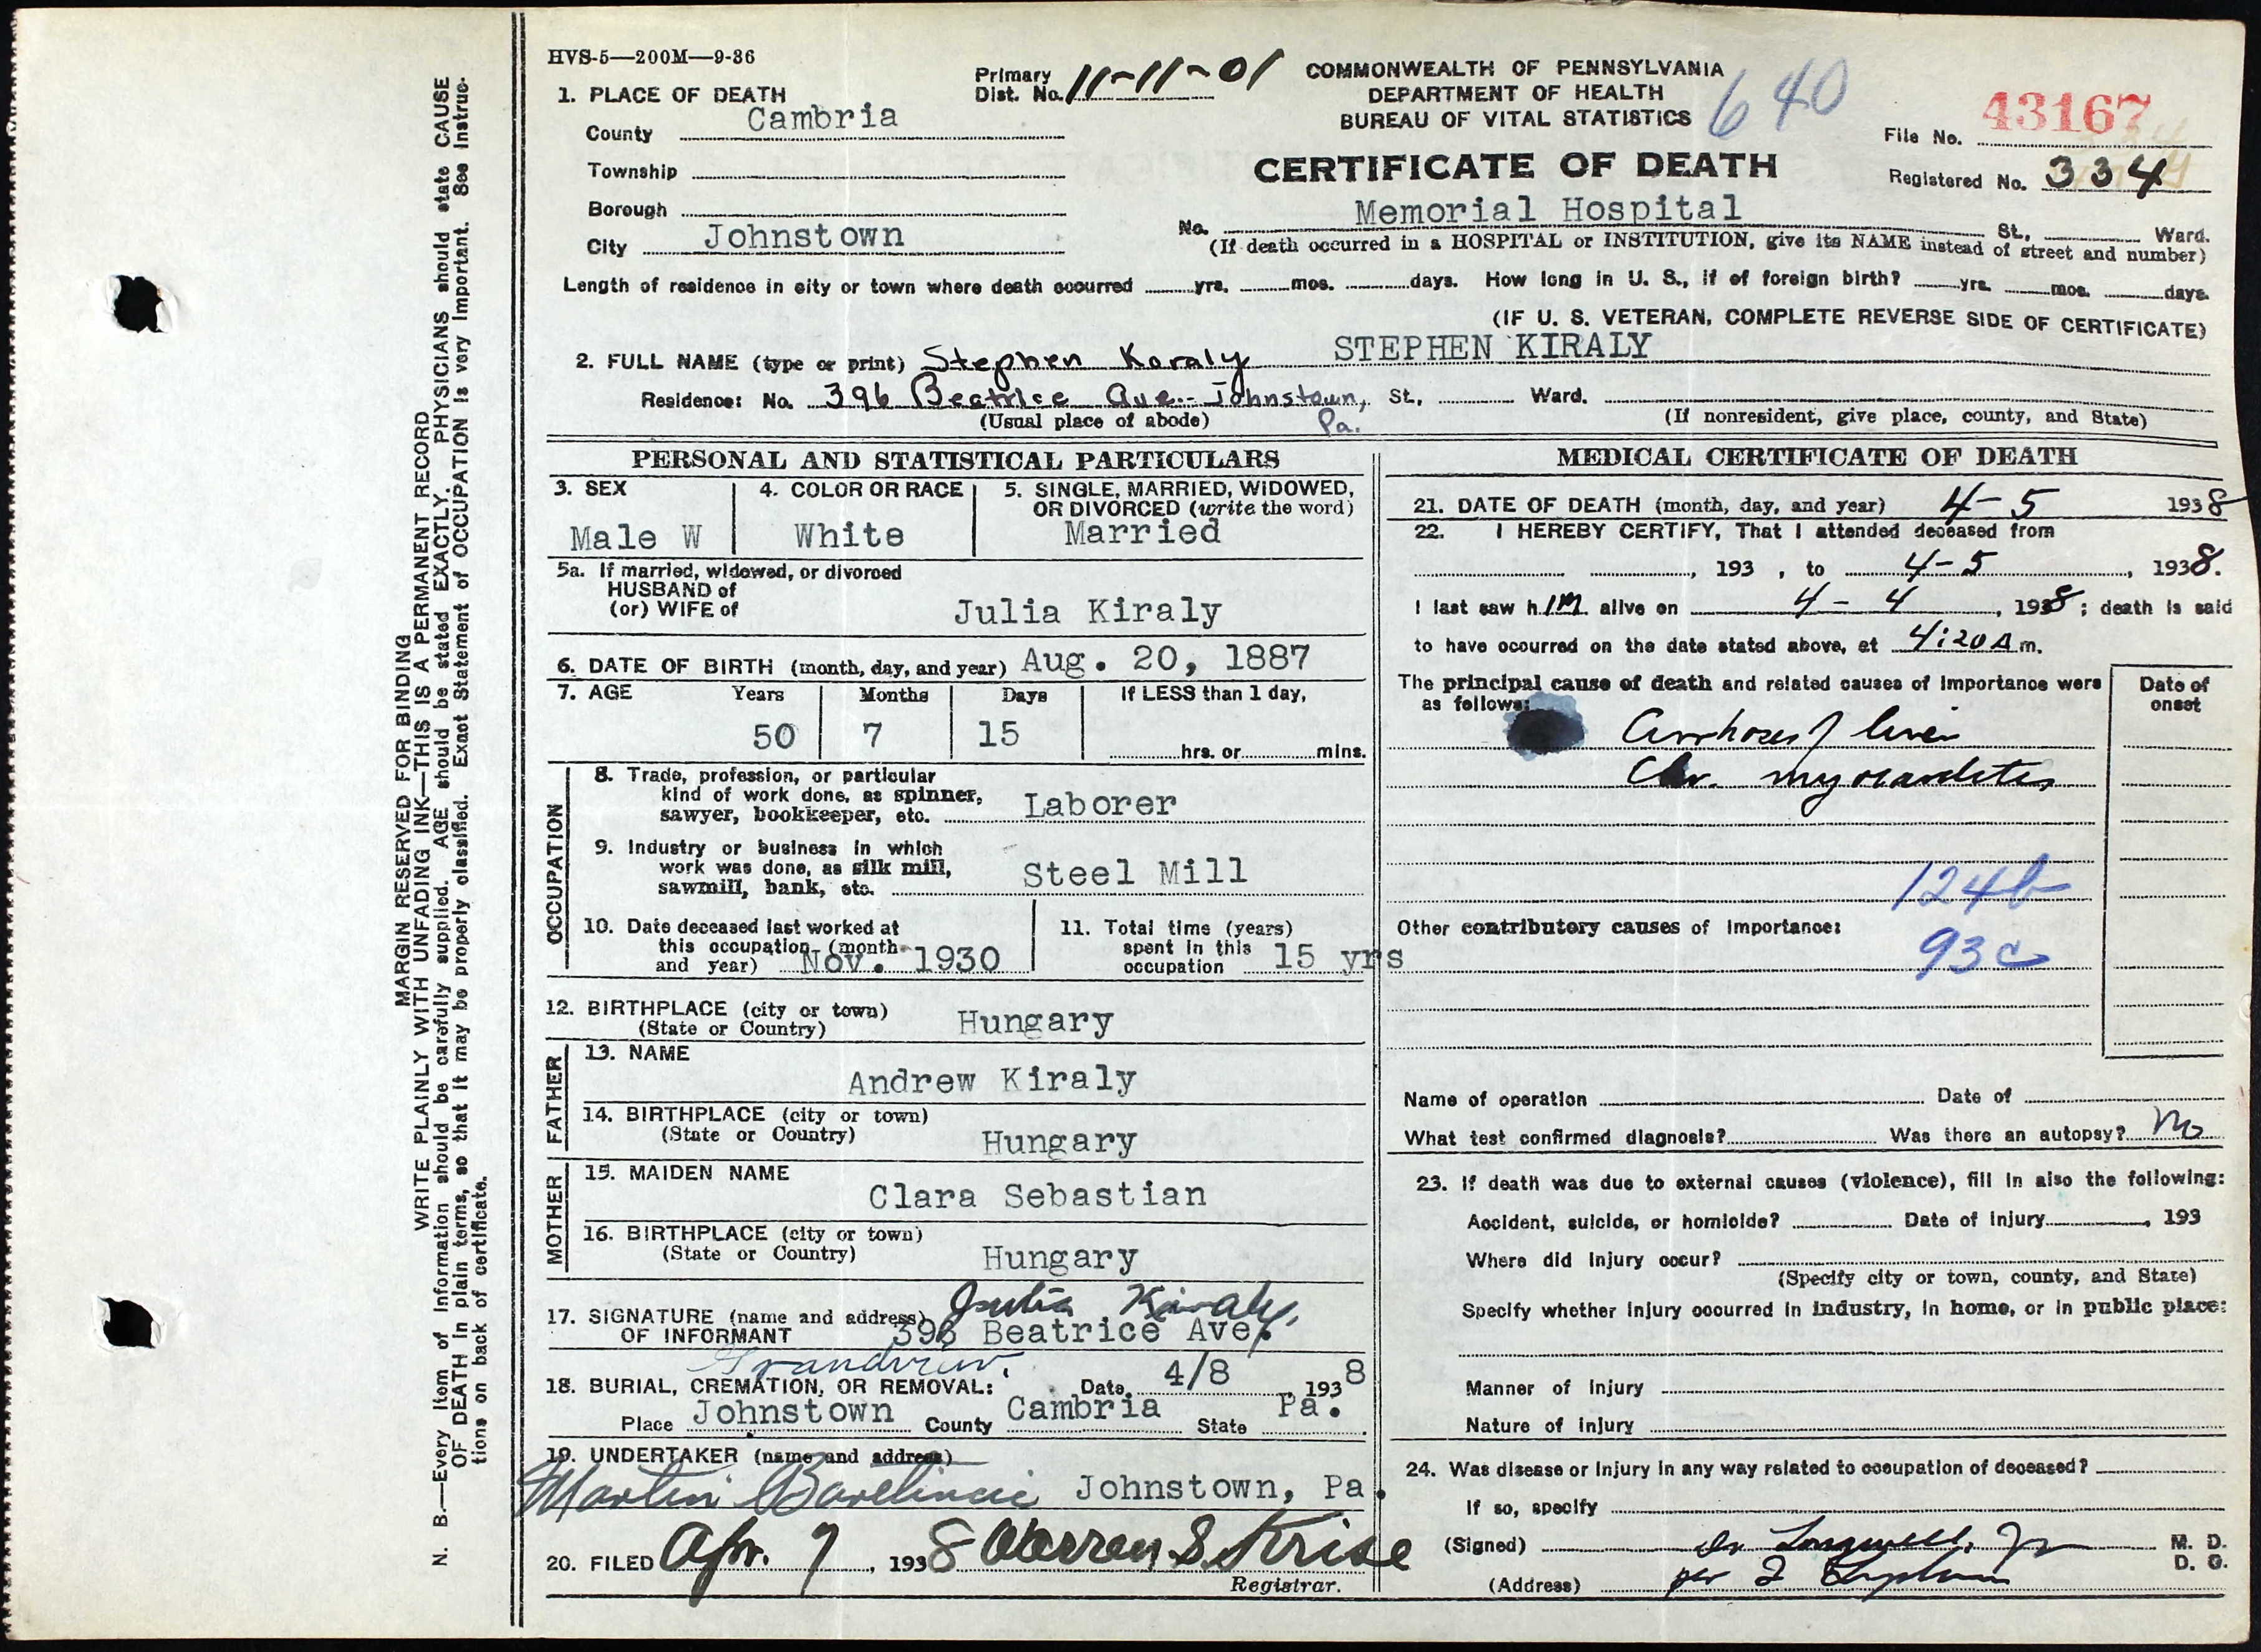 HVS-5—200M—9-36
Primary Dist. No. 11-11-01
COMMONWEALTH OF PENNSYLVANIA
DEPARTMENT OF HEALTH
BUREAU OF VITAL STATISTICS
640
File No. 43167
CERTIFICATE OF DEATH
Registered No. 334
1. PLACE OF DEATH
County Cambria
Township
Borough
City Johnstown
No. Memorial Hospital St., Ward.
(If death occurred in a HOSPITAL or INSTITUTION, give its NAME instead of street and number)
Length of residence in city or town where death occurred yrs. mos. days. How long in U. S., if of foreign birth? yrs. mos. days.
(IF U. S. VETERAN, COMPLETE REVERSE SIDE OF CERTIFICATE)
2. FULL NAME (type or print) Stephen Koraly STEPHEN KIRALY
Residence: No. 396 Beatrice Ave.- Johnstown, Pa. St., Ward.
(Usual place of abode) (If nonresident, give place, county, and State)
PERSONAL AND STATISTICAL PARTICULARS
3. SEX Male W
4. COLOR OR RACE White
5. SINGLE, MARRIED, WIDOWED, OR DIVORCED (write the word) Married
5a. If married, widowed, or divorced
HUSBAND of
(or) WIFE of Julia Kiraly
6. DATE OF BIRTH (month, day, and year) Aug. 20, 1887
7. AGE Years Months Days If LESS than 1 day,
50 7 15 hrs. or mins.
OCCUPATION
8. Trade, profession, or particular
kind of work done, as spinner,
sawyer, bookkeeper, etc. Laborer
9. Industry or business in which
work was done, as silk mill,
sawmill, bank, etc. Steel Mill
10. Date deceased last worked at
this occupation (month
and year) Nov. 1930
11. Total time (years)
spent in this
occupation 15 yrs
12. BIRTHPLACE (city or town)
(State or Country) Hungary
FATHER
13. NAME
Andrew Kiraly
14. BIRTHPLACE (city or town)
(State or Country) Hungary
MOTHER
15. MAIDEN NAME
Clara Sebastian
16. BIRTHPLACE (city or town)
(State or Country) Hungary
17. SIGNATURE (name and address) Julia Kiraly,
OF INFORMANT 396 Beatrice Ave.
Grandview.
18. BURIAL, CREMATION, OR REMOVAL: Date 4/8, 1938
Place Johnstown County Cambria State Pa.
19. UNDERTAKER (name and address)
Martin Johnstown, Pa.
20. FILED Apr. 7, 1938 Warren S. Krise
Registrar.
MEDICAL CERTIFICATE OF DEATH
21. DATE OF DEATH (month, day, and year) 4-5 1938
22. I HEREBY CERTIFY, That I attended deceased from
, 193 , to 4-5, 1938.
I last saw him alive on 4-4, 1938; death is said
to have occurred on the date stated above, at 4:20 A m.
The principal cause of death and related causes of importance were
as follows:
Date of onset
Cirrhosis of liver
Chr. myocarditis
124b
Other contributory causes of importance:
93c
Name of operation Date of
What test confirmed diagnosis? Was there an autopsy? No
23. If death was due to external causes (violence), fill in also the following:
Accident, suicide, or homicide? Date of injury , 193
Where did injury occur?
(Specify city or town, county, and State)
Specify whether injury occurred in industry, in home, or in public place:
Manner of injury
Nature of injury
24. Was disease or injury in any way related to occupation of deceased?
If so, specify
(Signed) Dr Longwell, Jr M. D.
D. O.
(Address) per
MARGIN RESERVED FOR BINDING
WRITE PLAINLY WITH UNFADING INK—THIS IS A PERMANENT RECORD
N. B.—Every item of information should be carefully supplied. AGE should be stated EXACTLY. PHYSICIANS should state CAUSE
OF DEATH in plain terms, so that it may be properly classified. Exact Statement of OCCUPATION is very important. See instruc-
tions on back of certificate.